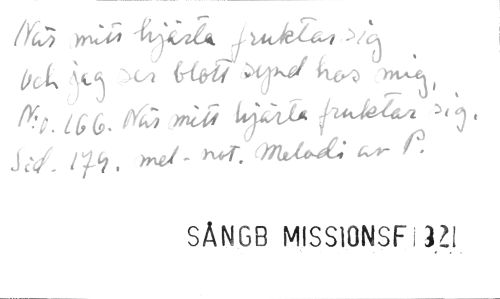 När mitt hjärta fruktar sig
och jag ser blott synd hos mig,
N:o. 166. När mitt hjärta fruktar sig.
Sid. 179. mel-not. Melodi av P.
SÅNGB MISSIONSF 1321